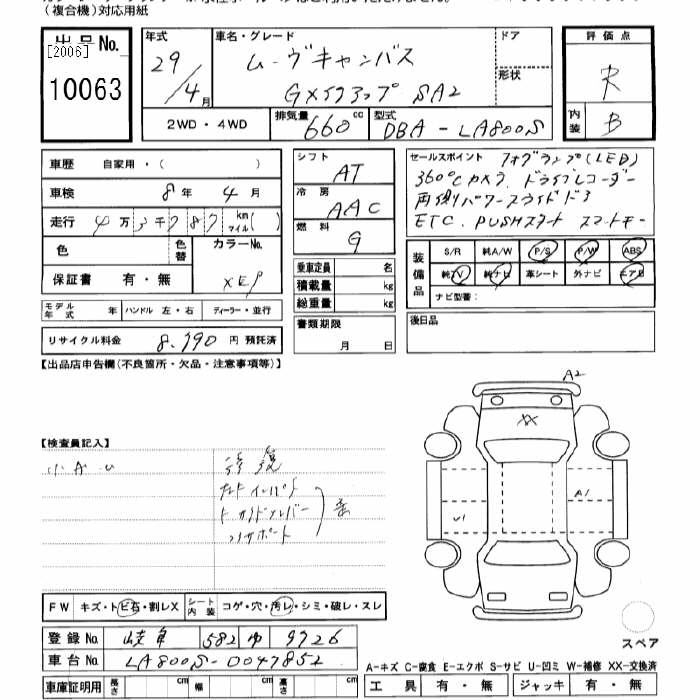 (複合機)対応用紙
出品No.
[2006]
10063
年式
29/4月
車名・グレード
ムーヴキャンバス
Gメイクアップ SA2
ドア
形状
2WD・4WD
排気量 660 cc
型式 DBA-LA800S
評価点
R
内装 B
車歴 自家用・( )
車検 8年 4月
走行 4万3千787 km マイル( )
色
色替
カラーNo.
XE9
保証書 有・無
モデル年式 年
ハンドル 左・右
ディーラー・並行
リサイクル料金 8,790 円 預託済
シフト AT
冷房 AAC
燃料 G
乗車定員 名
積載量 kg
総重量 kg
書類期限
月 日
セールスポイント フォグランプ(LED)
360°Cカメラ ドライブレコーダー
両側パワースライドドア
ETC. PUSHスタート スマートキー
装備品
S/R 純A/W P/S P/W ABS
純TV 純ナビ 革シート 外ナビ エアB
ナビ型番:
後日品
【出品店申告欄(不良箇所・欠品・注意事項等)】
【検査員記入】
小A U
A2
XX
A1
U1
コアサポート
FW キズ・トビ石・割レX
シート内装 コゲ・穴・汚レ・シミ・破レ・スレ
スペア
登録No. 岐阜 582 ゆ 9726
車台No. LA800S-0047852
A-キズ C-腐食 E-エクボ S-サビ U-凹ミ W-補修 XX-交換済
車庫証明用 長さ cm 幅 cm 高さ cm
工具 有・無 ジャッキ 有・無